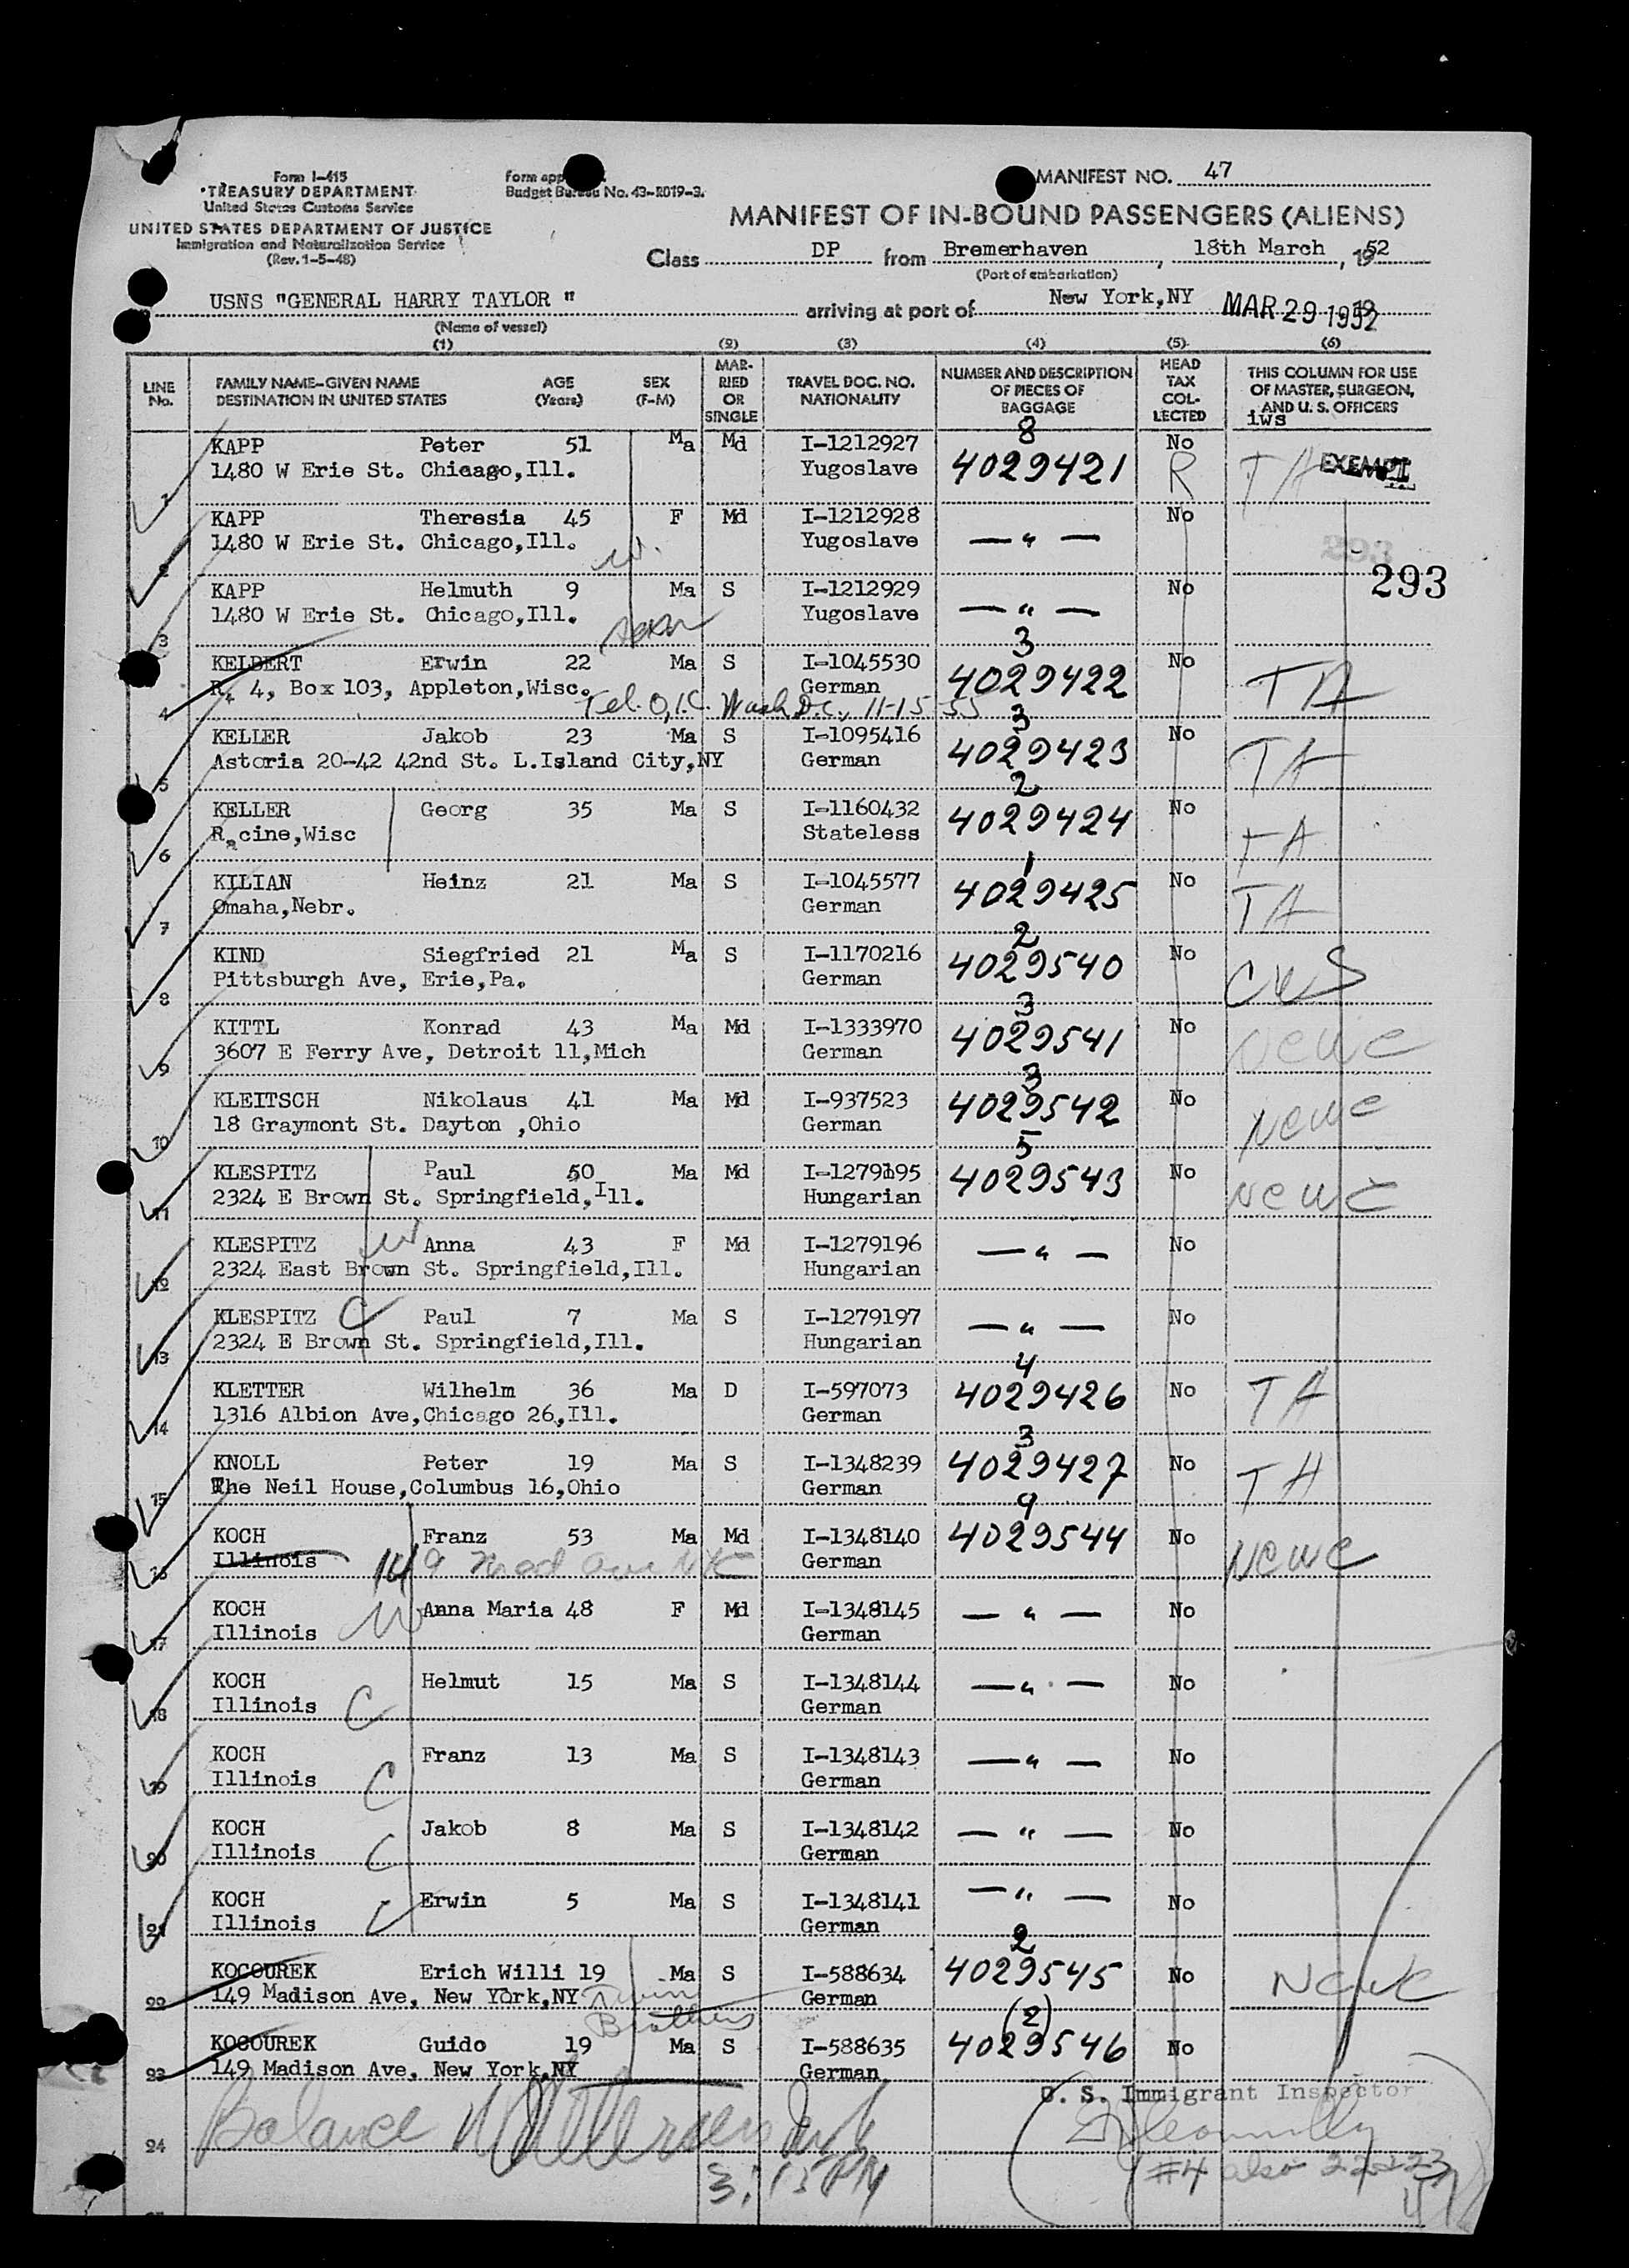 Form I-415
TREASURY DEPARTMENT
United States Customs Service
UNITED STATES DEPARTMENT OF JUSTICE
Immigration and Naturalization Service
(Rev. 1-5-48)
Form app
Budget Bureau No. 43-R019-3.
MANIFEST NO. 47
MANIFEST OF IN-BOUND PASSENGERS (ALIENS)
Class DP from Bremerhaven, 18th March, 1952
(Port of embarkation)
USNS "GENERAL HARRY TAYLOR " arriving at port of New York,NY MAR 29 1952
(Name of vessel)
(1) (2) (3) (4) (5) (6)
LINE No. FAMILY NAME–GIVEN NAME DESTINATION IN UNITED STATES AGE (Years) SEX (F-M) MARRIED OR SINGLE TRAVEL DOC. NO. NATIONALITY NUMBER AND DESCRIPTION OF PIECES OF BAGGAGE HEAD TAX COLLECTED THIS COLUMN FOR USE OF MASTER, SURGEON, AND U. S. OFFICERS
iws
1 KAPP Peter 51 Ma Md I-1212927 8 No
1480 W Erie St. Chicago,Ill. Yugoslave 4029421 R TA EXEMPT
2 KAPP Theresia 45 F Md I-1212928 No
1480 W Erie St. Chicago,Ill. w. Yugoslave — " —
293
293
3 KAPP Helmuth 9 Ma S I-1212929 No
1480 W Erie St. Chicago,Ill. Yugoslave — " —
4 KELBERT Erwin 22 Ma S I-1045530 3 No
R. 4, Box 103, Appleton,Wisc. German 4029422 TA
Tel. O.I.C. Wash D.C., 11-15-55
5 KELLER Jakob 23 Ma S I-1095416 3 No
Astoria 20-42 42nd St. L.Island City,NY German 4029423 TA
6 KELLER Georg 35 Ma S I-1160432 2 No
Racine,Wisc Stateless 4029424 TA
7 KILIAN Heinz 21 Ma S I-1045577 1 No
Omaha,Nebr. German 4029425 TA
8 KIND Siegfried 21 Ma S I-1170216 2 No
Pittsburgh Ave, Erie,Pa. German 4029540 CWS
9 KITTL Konrad 43 Ma Md I-1333970 3 No
3607 E Ferry Ave, Detroit 11,Mich German 4029541 NCWC
10 KLEITSCH Nikolaus 41 Ma Md I-937523 3 No
18 Graymont St. Dayton ,Ohio German 4029542 NCWC
11 KLESPITZ Paul 50 Ma Md I-1279195 5 No
2324 E Brown St. Springfield,Ill. Hungarian 4029543 NCWC
12 KLESPITZ W Anna 43 F Md I-1279196 No
2324 East Brown St. Springfield,Ill. Hungarian — " —
13 KLESPITZ C Paul 7 Ma S I-1279197 No
2324 E Brown St. Springfield,Ill. Hungarian — " —
14 KLETTER Wilhelm 36 Ma D I-597073 4 No
1316 Albion Ave,Chicago 26,Ill. German 4029426 TA
15 KNOLL Peter 19 Ma S I-1348239 3 No
The Neil House,Columbus 16,Ohio German 4029427 TA
16 KOCH Franz 53 Ma Md I-1348140 9 No
Illinois 149 Mad Ave NYC German 4029544 NCWC
17 KOCH W Anna Maria 48 F Md I-1348145 — " — No
Illinois German
18 KOCH Helmut 15 Ma S I-1348144 — " — No
Illinois C German
19 KOCH Franz 13 Ma S I-1348143 — " — No
Illinois C German
20 KOCH Jakob 8 Ma S I-1348142 — " — No
Illinois C German
21 KOCH Erwin 5 Ma S I-1348141 — " — No
Illinois C German
22 KOCOUREK Erich Willi 19 Ma S I-588634 2 4029545 No NCWC
149 Madison Ave, New York,NY Twin Brothers German
23 KOCOUREK Guido 19 Ma S I-588635 (2) 4029546 No
149 Madison Ave, New York,NY German
U. S. Immigrant Inspector
24 Balance
#4 also 22 & 23
3:15 PM